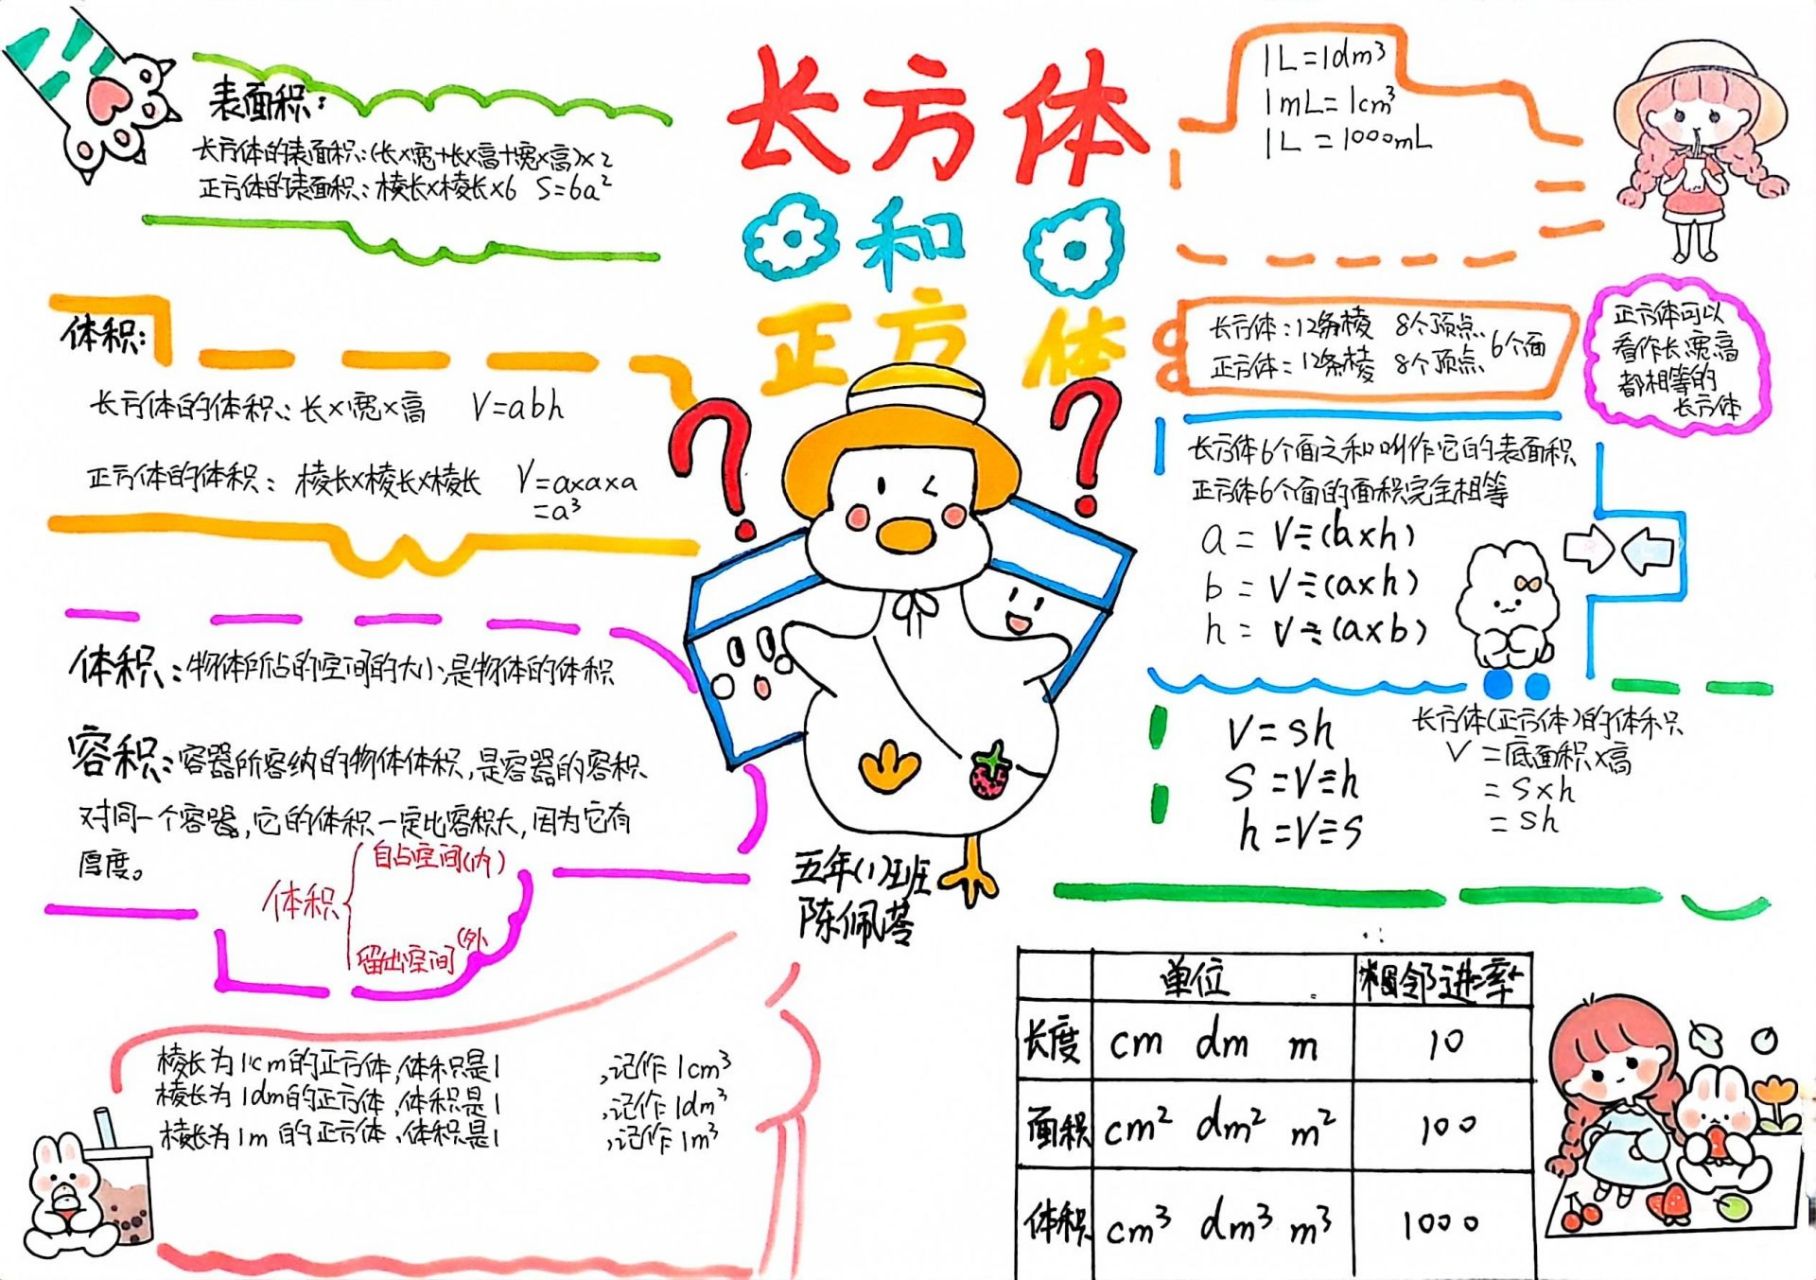 长方体
和
正方体
表面积：
长方体的表面积：(长×宽+长×高+宽×高)×2
正方体的表面积：棱长×棱长×6 S=6a²
体积：
长方体的体积：长×宽×高 V=abh
正方体的体积：棱长×棱长×棱长 V=a×a×a
=a³
体积：物体所占的空间的大小是物体的体积
容积：容器所容纳的物体体积，是容器的容积
对同一个容器，它的体积一定比容积大，因为它有
厚度。
体积
自占空间(内)
留出空间(外
棱长为1cm的正方体，体积是1 ，记作1cm³
棱长为1dm的正方体，体积是1 ，记作1dm³
棱长为1m的正方体，体积是1 ，记作1m³
五年(1)班
陈佩苓
1L=1dm³
1mL=1cm³
1L=1000mL
长方体：12条棱 8个顶点 6个面
正方体：12条棱 8个顶点
正方体可以
看作长宽高
都相等的
长方体
长方体6个面之和叫作它的表面积
正方体6个面的面积完全相等
a=V÷(b×h)
b=V÷(a×h)
h=V÷(a×b)
V=sh
S=V÷h
h=V÷S
长方体(正方体)的体积
V=底面积×高
=S×h
=sh
单位 相邻进率
长度 cm dm m 10
面积 cm² dm² m² 100
体积 cm³ dm³ m³ 1000